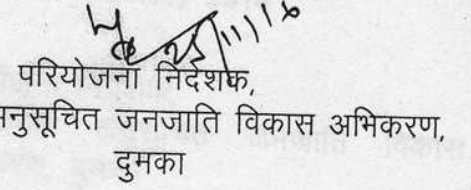 परियोजना निदेशक,
नुसूचित जनजाति विकास अभिकरण,
दुमका